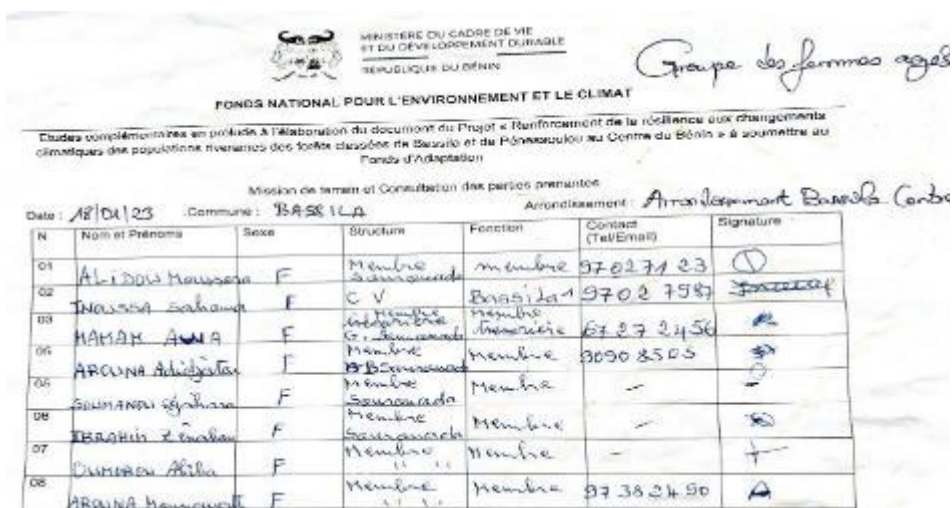 MINISTERE DU CADRE DE VIE
ET DU DEVELOPPEMENT DURABLE
REPUBLIQUE DU BENIN
Groupe des femmes agés
FONDS NATIONAL POUR L'ENVIRONNEMENT ET LE CLIMAT
Etudes complémentaires en prélude à l'élaboration du document du Projet « Renforcement de la résilience aux changements
climatiques des populations riveraines des forêts classées de Bassila et de Pénessoulou au Centre du Bénin » à soumettre au
Fonds d'Adaptation
Mission de terrain et Consultation des parties prenantes
Date : 18/01/23 Commune : BASSILA Arrondissement : Arrondissement Bassila Centre
N Nom et Prénoms Sexe Structure Fonction Contact (Tel/Email) Signature
01 ALIDOU F Membre membre 97027123
02 INOUSSA F C V Bassila 1 97027987
03 MAMAM AWA F Membre trésorière G. Membre trésorière 67272456
05 AROUNA Adidjatou F Membre Membre 90908503
05 F Membre Membre -
06 IBRAHIM F Membre Membre -
07 OUMOROU Aliba F Membre " " Membre -
08 AROUNA F Membre " " Membre 97382490